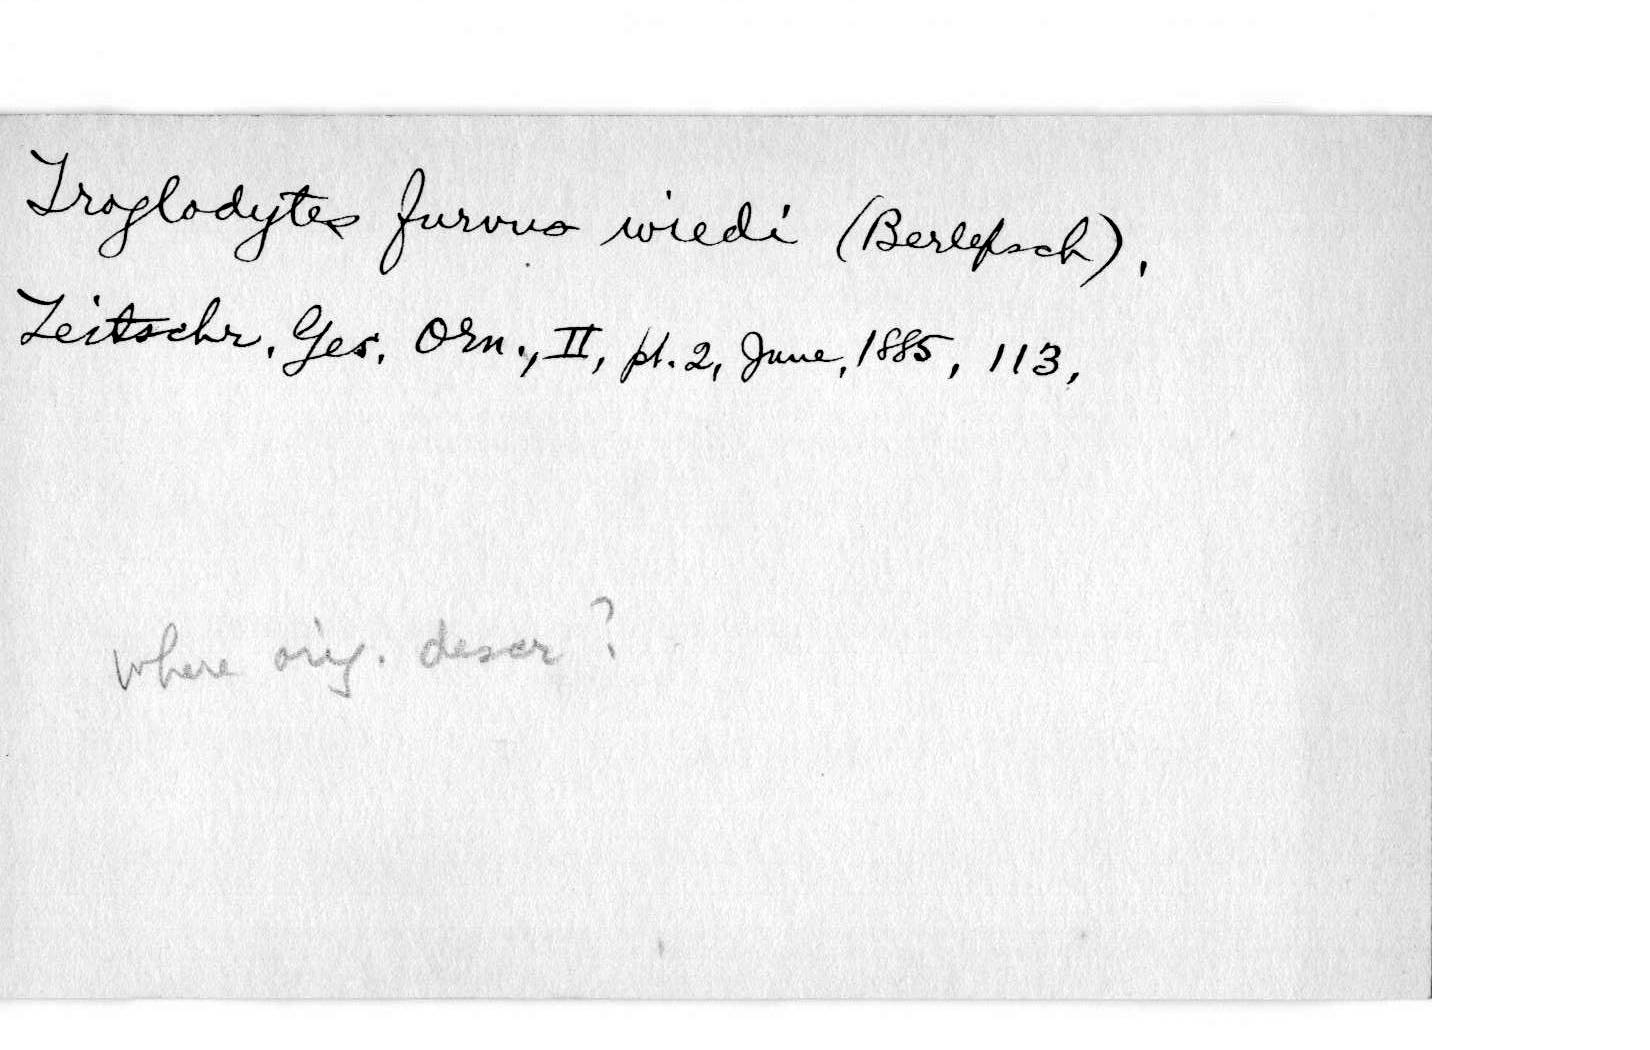 Troglodytes furvus wiedi (Berlepsch),
Zeitschr. Ges. Orn., II, pt. 2, June, 1885, 113,
where orig. descr ?